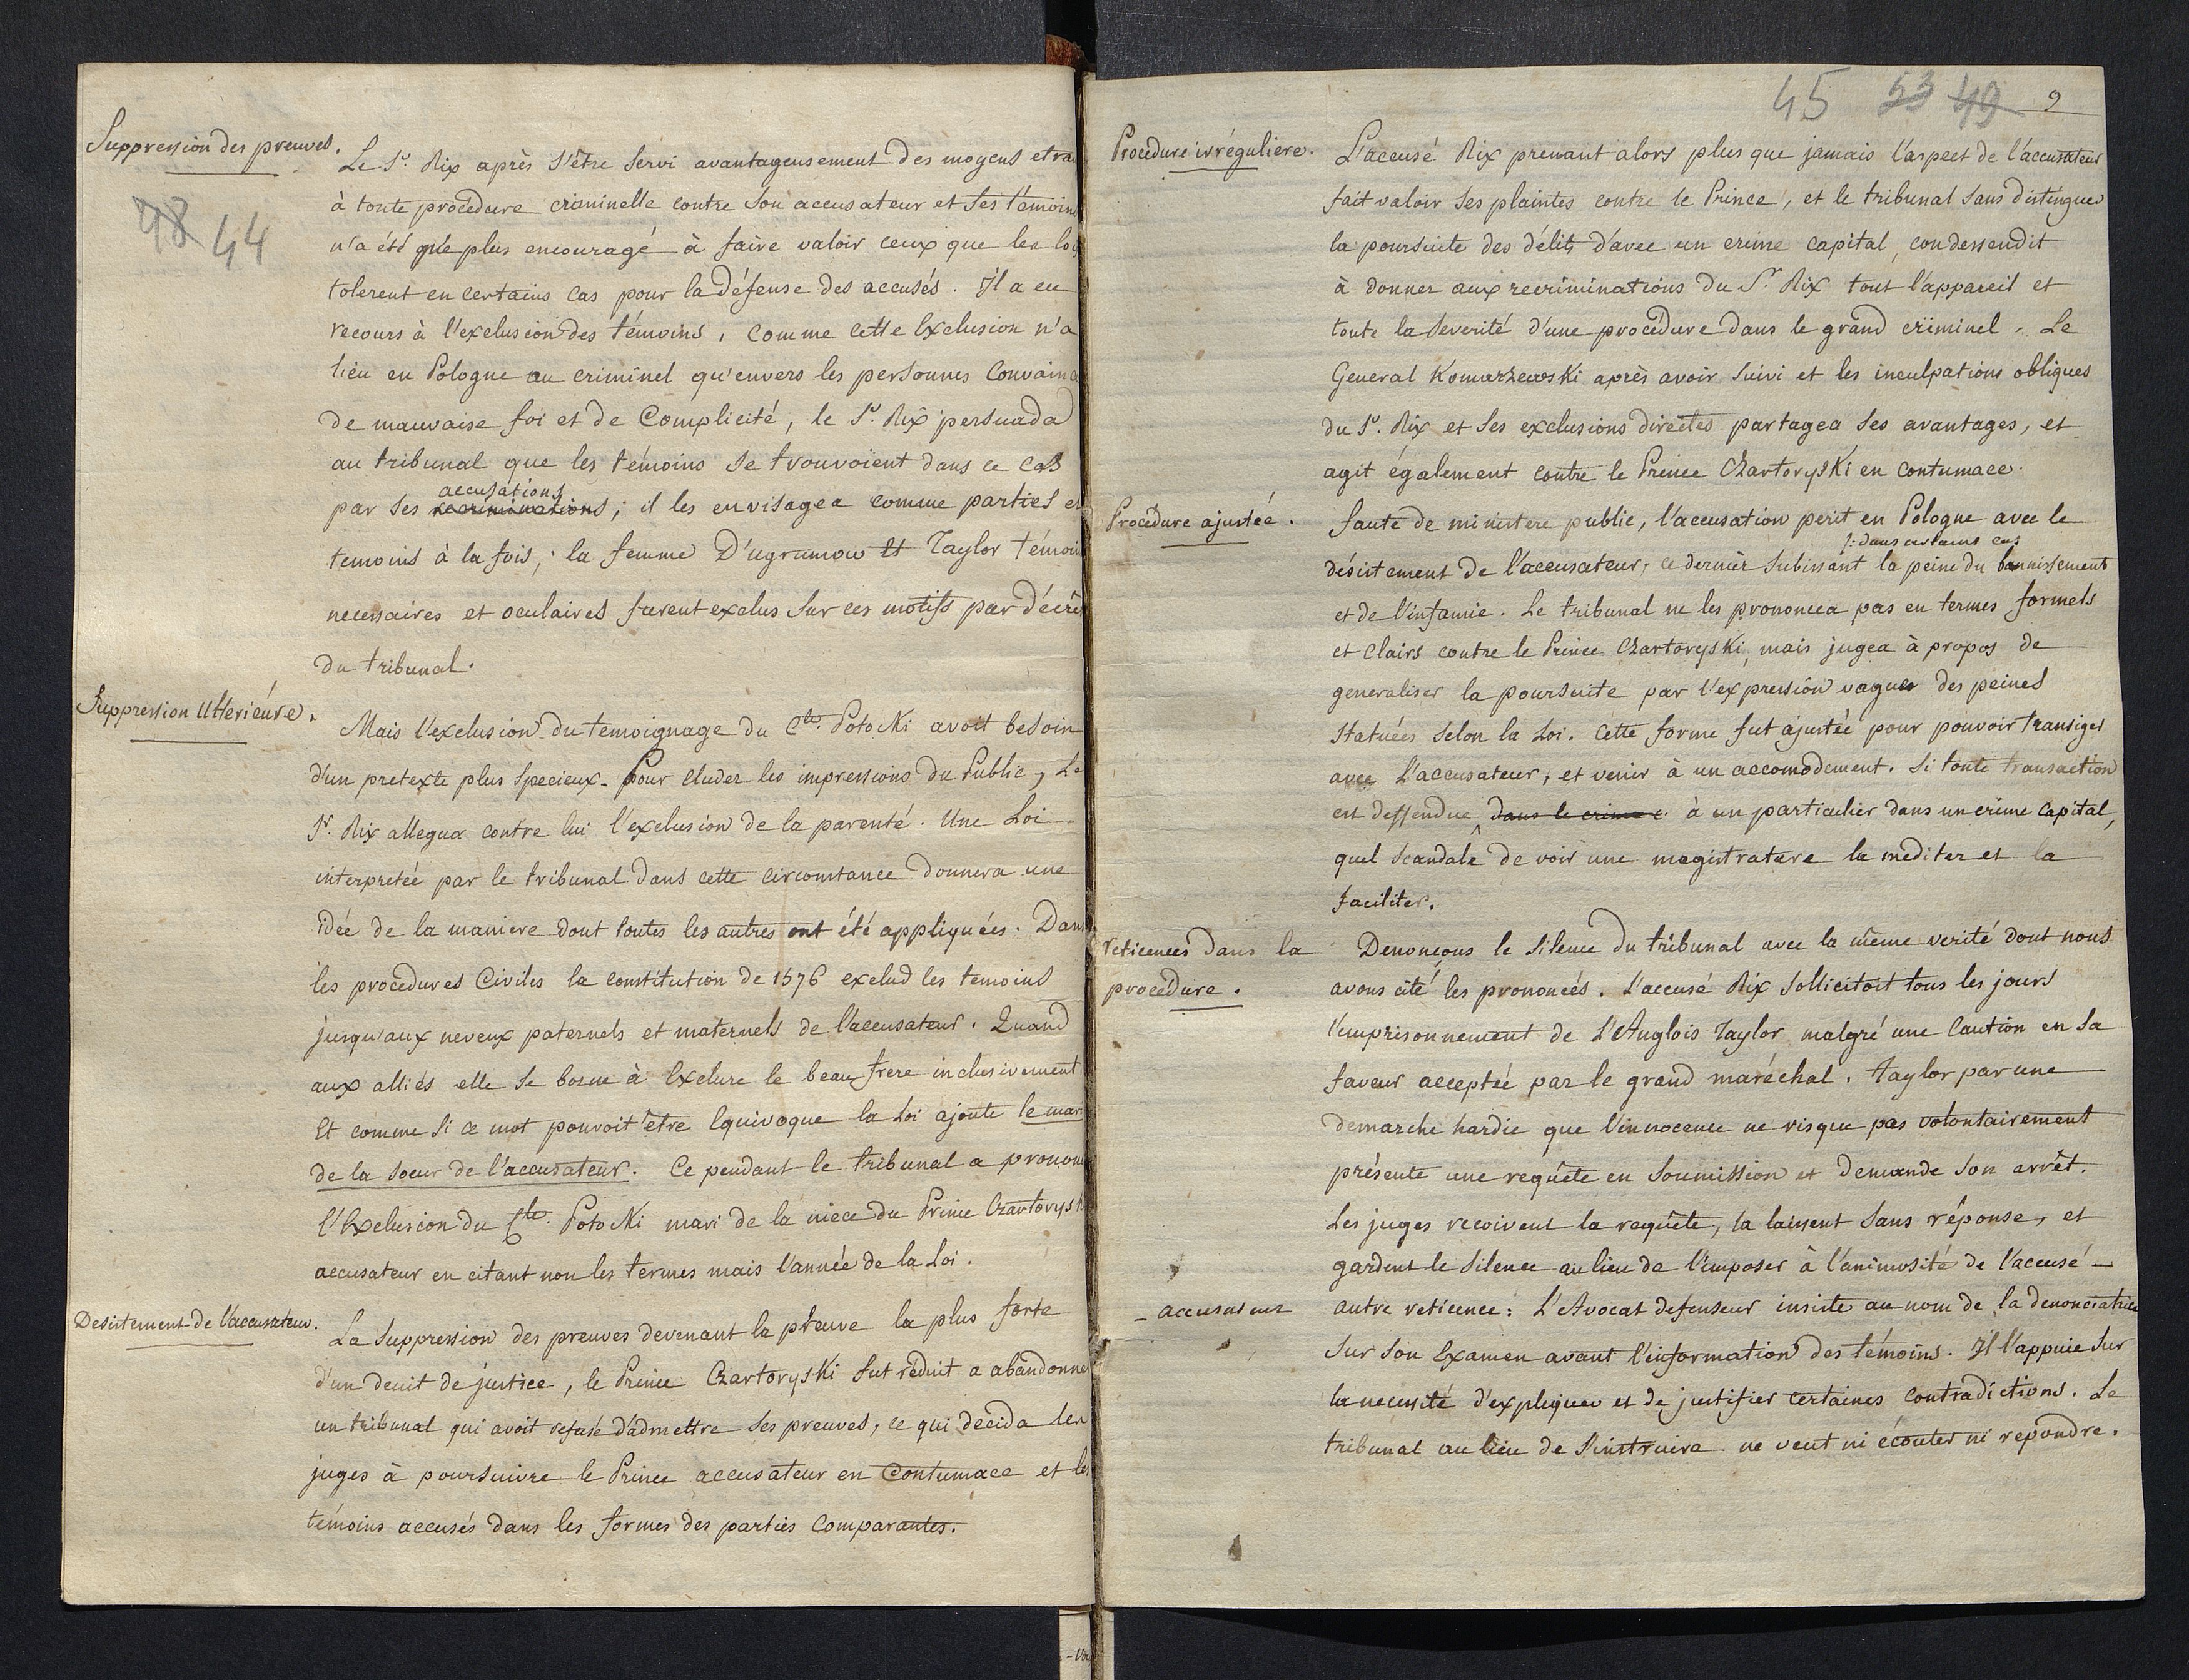 Suppression des preuves.
48 44
Le Sr. Rix après s'être servi avantageusement des moyens etra
à toute procédure criminelle contre son accusateur et ses témoins
n'a été que plus encouragé à faire valoir ceux que les loix
tolerent en certains cas pour la défense des accusés. Il a eu
recours à l'exclusion des témoins, comme cette Exclusion n'a
lieu en Pologne au criminel qu'envers les personnes Convainc
de mauvaise foi et de Complicité, le Sr. Rix persuada
au tribunal que les témoins se trouvoient dans ce cas
accusations
par ses recriminations; il les envisagea comme parties et
temoins à la fois; la femme D'ugrumow et Taylor témoins
necessaires et oculaires furent exclus sur ces motifs par décret
du tribunal.
Suppression Ulterieure.
Mais l'exclusion du temoignage du Cte. Potocki avoit besoin
d'un pretexte plus specieux. Pour eluder les impressions du Public, Le
Sr. Rix allegua contre lui l'exclusion de la parenté. Une Loi
interpretée par le tribunal dans cette circonstance donnera une
idée de la maniere dont toutes les autres ont été appliquées. Dans
les procedures Civiles la constitution de 1576 exclud les temoins
jusqu'aux neveux paternels et maternels de l'accusateur. Quand
aux alliés elle se borne à Exclure le beau frere inclusivement.
Et comme si ce mot pouvoit être Equivoque la Loi ajoute le mari
de la soeur de l'accusateur. Ce pendant le tribunal a prononc
l'Exclusion du Cte. Potocki mari de la niece du Prince Czartorysk
accusateur en citant non les termes mais l'année de la Loi.
Desistement de l'accusateur.
La Suppression des preuves devenant la preuve la plus forte
d'un denit de justice, le Prince Czartoryski fut réduit a abandonner
un tribunal qui avoit refusé d'admettre ses preuves, ce qui decida les
juges à poursuivre le Prince accusateur en Contumace et les
témoins accusés dans les formes des parties Comparantes.
45 53 49 9
Procedure irréguliere.
L'accusé Rix prenant alors plus que jamais l'aspect de l'accusateur
fait valoir ses plaintes contre le Prince, et le tribunal sans distinguer
la poursuite des délits d'avec un crime capital, condessendit
à donner aux recriminations du Sr. Rix tout l'appareil et
toute la severité d'une procédure dans le grand criminel. Le
General Komarzewski après avoir suivi et les inculpations obliques
du Sr. Rix et ses exclusions directes partagea ses avantages, et
agit également contre le Prince Czartoryski en contumace.
Procedure ajustée.
faute de ministere public, l'accusation perit en Pologne avec le
/: dans certains cas
désistement de l'accusateur; ce dernier subissant la peine du bannissement
et de l'infamie. Le tribunal ne les prononcea pas en termes formels
et clairs contre le Prince Czartoryski, mais jugea à propos de
generaliser la poursuite par l'expression vague des peines
statuées selon la Loi. Cette forme fut ajustée pour pouvoir transiger
avec l'accusateur, et venir à un accomodement. Si toute transaction
est deffendue dans le crime à un particulier dans un crime capital,
quel scandale de voir une magistrature la mediter et la
faciliter.
reticences dans la
procedure.
Denonçons le silence du tribunal avec la même verité dont nous
avons cité les prononcés. L'accusé Rix sollicitoit tous les jours
l'emprisonnement de L'Anglois Taylor, malgré une Caution en sa
faveur acceptée par le grand maréchal. Taylor par une
demarche hardie que l'innocence ne risque pas volontairement
présente une requête en soumission et demande son arrêt.
Les juges recoivent la requête, la laissent sans réponse, et
gardent le silence au lieu de l'imposer à l'animosité de l'accusé —
— accusateur
autre reticence: L'Avocat defenseur insiste au nom de la denonciatrice
sur son Examen avant l'information des témoins. Il l'appuie sur
la necessité d'expliquer et de justifier certaines contradictions. Le
tribunal au lieu de s'instruire ne veut ni écouter ni repondre.